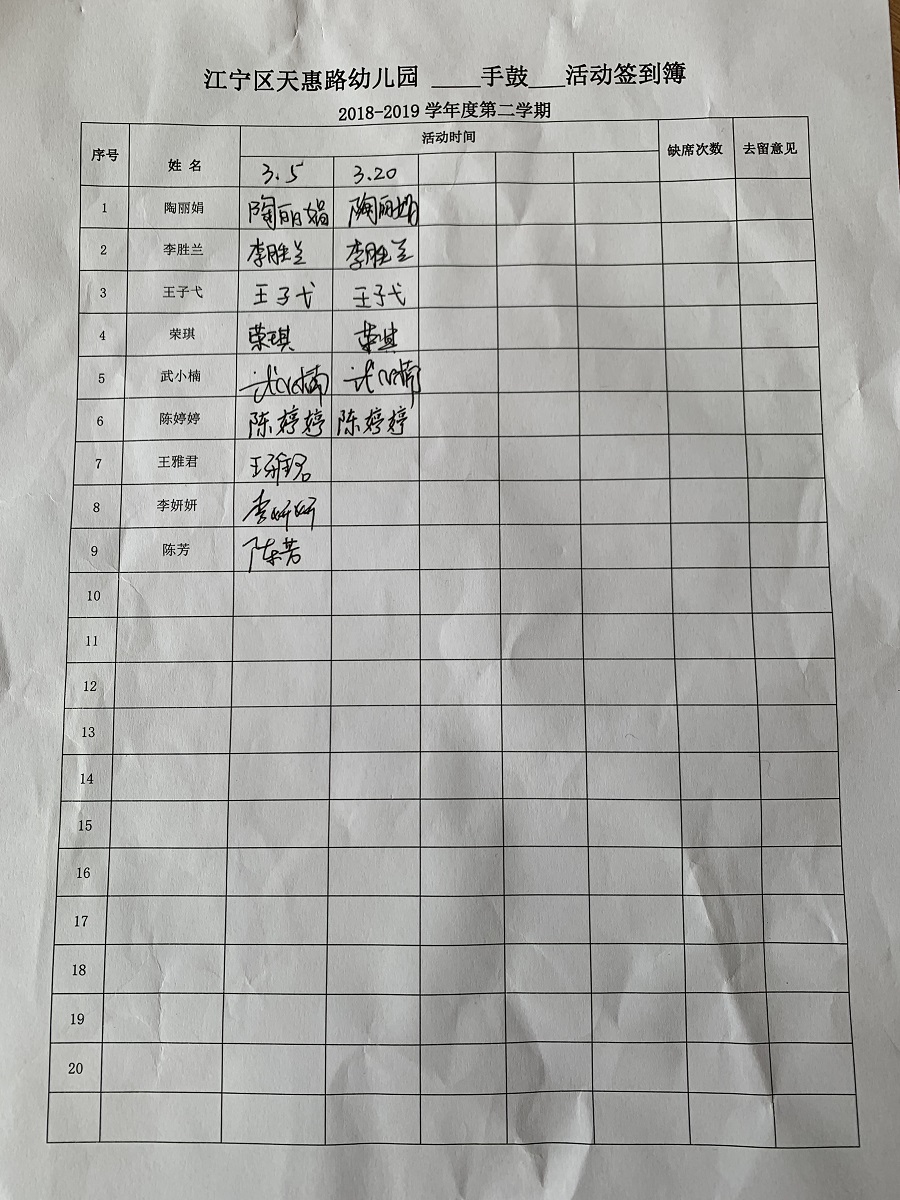 江宁区天惠路幼儿园 ____手鼓___活动签到簿
2018-2019 学年度第二学期
序号 姓 名 活动时间 缺席次数 去留意见
3.5 3.20
1 陶丽娟 陶丽娟 陶丽娟
2 李胜兰 李胜兰 李胜兰
3 王子弋 王子弋 王子弋
4 荣琪 荣琪 荣琪
5 武小楠 武小楠 武小楠
6 陈婷婷 陈婷婷 陈婷婷
7 王雅君 王雅君
8 李妍妍 李妍妍
9 陈芳 陈芳
10
11
12
13
14
15
16
17
18
19
20